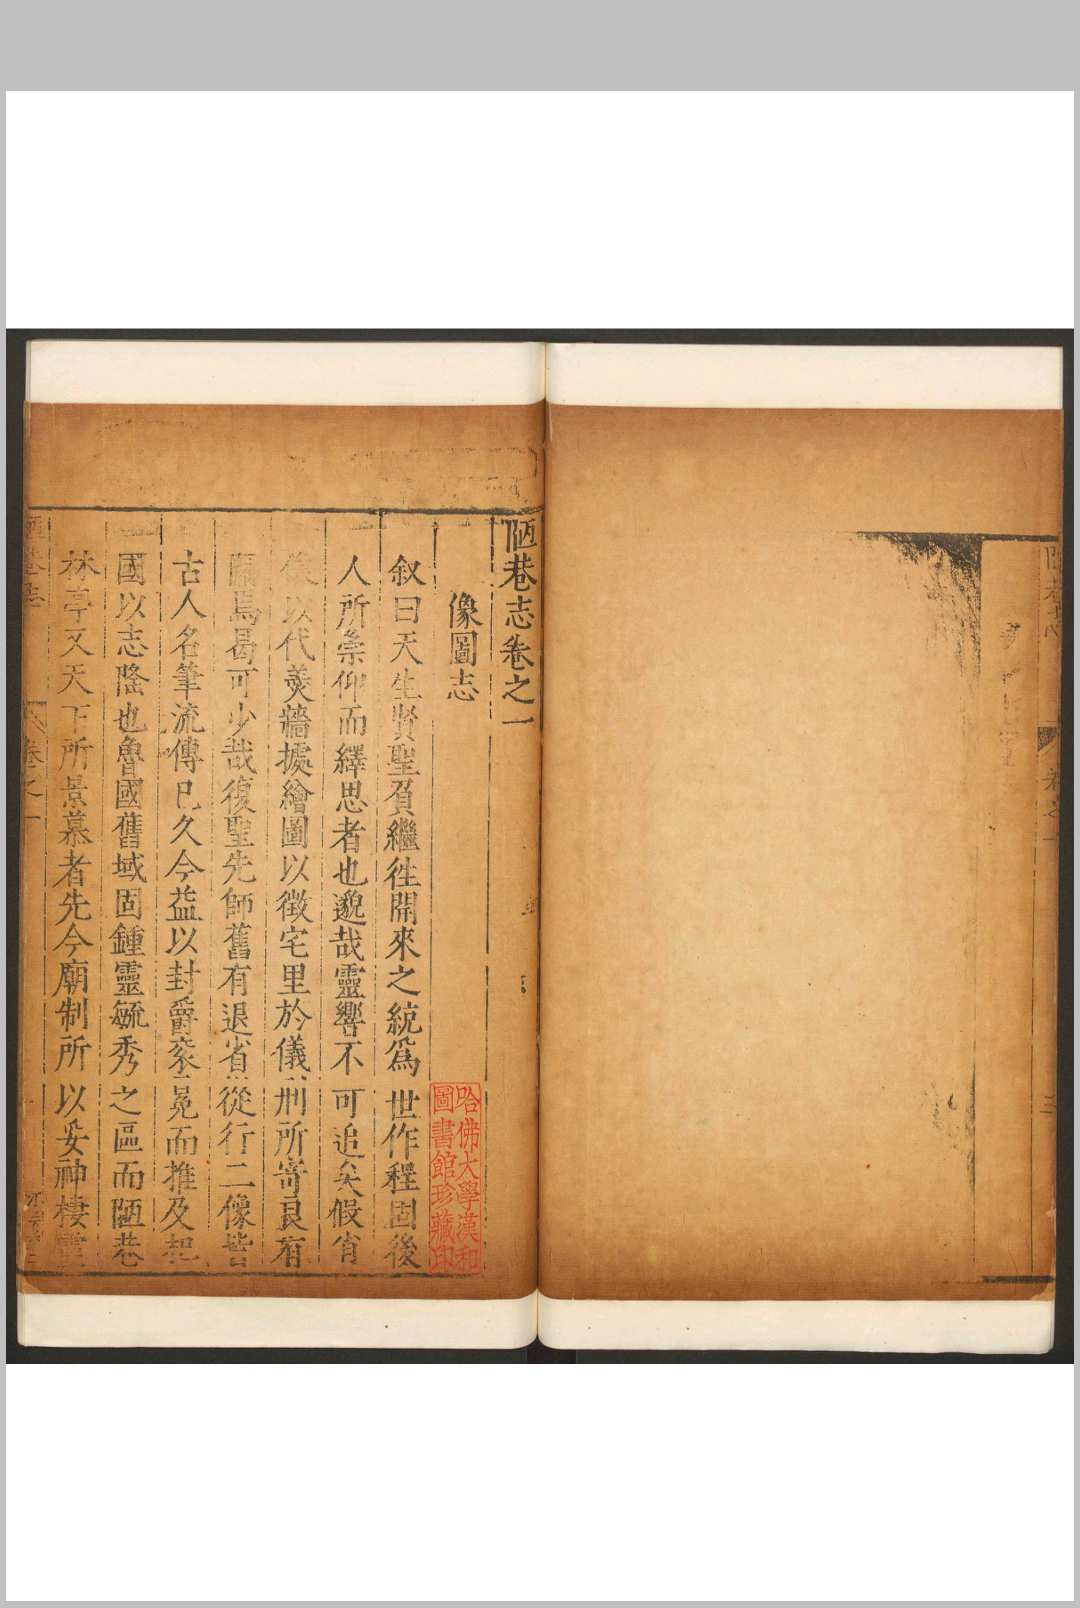 陋巷志卷之一
像圖志
叙曰天生賢聖負繼徃開來之統爲世作程固後
人所崇仰而繹思者也邈哉靈響不可追矣假肖
以代羮牆據繪圖以徴宅里於儀刑所寄良有
焉曷可少哉復聖先師舊有退省從行二像皆
古人名筆流傳已久今益以封爵衮冕而推及杞
國以志隆也魯國舊域固鍾靈毓秀之區而陋巷
林亭又天下所景慕者先今廟制所以妥神棲靈
哈佛大學漢和
圖書館珍藏印
陋巷志
卷之一
卷之一